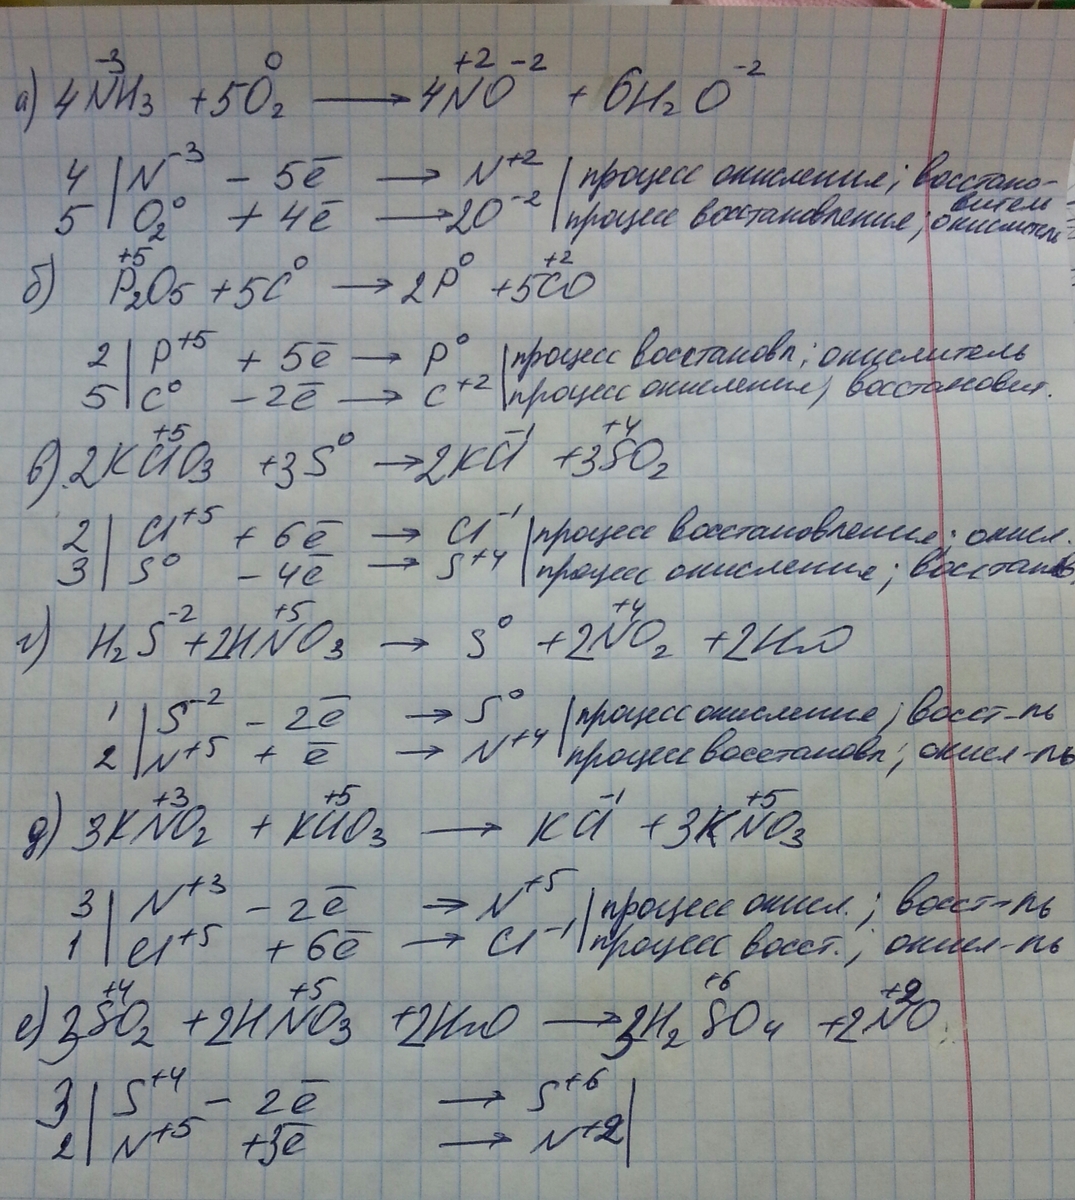 а) 4N⁻³H₃ + 5O₂⁰ ⟶ 4N⁺²O⁻² + 6H₂O⁻²
4 | N⁻³ – 5ē ⟶ N⁺² | процесс окисления; восстано-
вители
5 | O₂⁰ + 4ē ⟶ 2O⁻² | процесс восстановления; окислитель
б) P₂⁺⁵O₅ + 5C⁰ ⟶ 2P⁰ + 5C⁺²O
2 | P⁺⁵ + 5ē ⟶ P⁰ | процесс восстановл; окислитель
5 | C⁰ – 2ē ⟶ C⁺² | процесс окисления; восстановит.
в) 2KCl⁺⁵O₃ + 3S⁰ ⟶ 2KCl⁻¹ + 3S⁺⁴O₂
2 | Cl⁺⁵ + 6ē ⟶ Cl⁻¹ | процесс восстановления; окисл.
3 | S⁰ – 4ē ⟶ S⁺⁴ | процесс окисления; восстанов
г) H₂S⁻² + 2HN⁺⁵O₃ ⟶ S⁰ + 2N⁺⁴O₂ + 2H₂O
1 | S⁻² – 2ē ⟶ S⁰ | процесс окисления; восст-ль
2 | N⁺⁵ + ē ⟶ N⁺⁴ | процесс восстановл; окисл-ль
д) 3KN⁺³O₂ + KCl⁺⁵O₃ ⟶ KCl⁻¹ + 3KN⁺⁵O₃
3 | N⁺³ – 2ē ⟶ N⁺⁵ | процесс окисл.; восст-ль
1 | Cl⁺⁵ + 6ē ⟶ Cl⁻¹ | процесс восст.; окисл-ль
е) 3S⁺⁴O₂ + 2HN⁺⁵O₃ + 2H₂O ⟶ 3H₂S⁺⁶O₄ + 2N⁺²O
3 | S⁺⁴ – 2ē ⟶ S⁺⁶ |
2 | N⁺⁵ + 3ē ⟶ N⁺² |